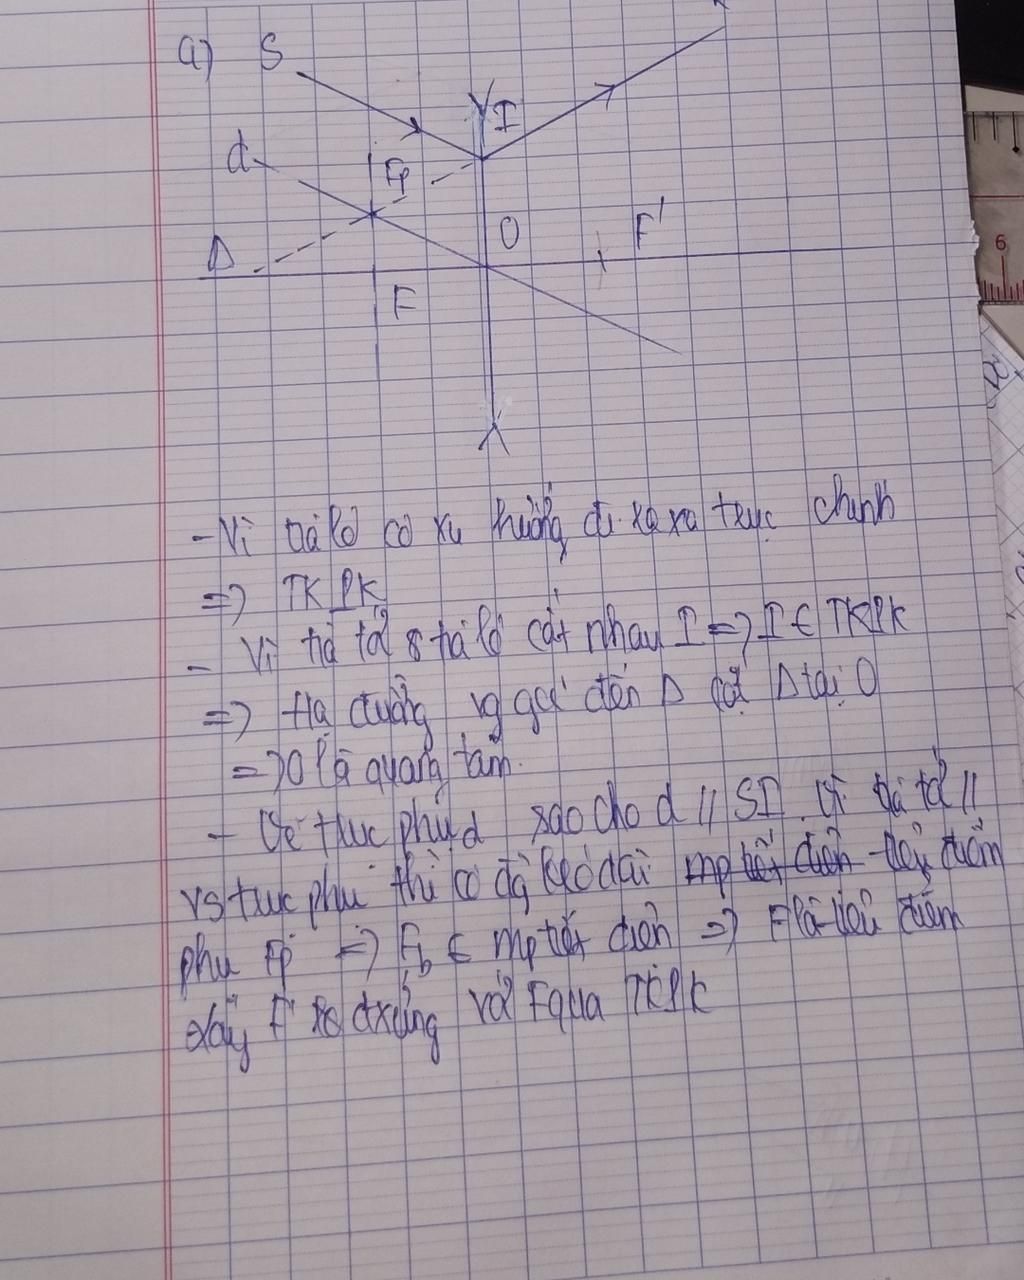 a) S
I
d
Fp
Δ
O
F'
F
6
- Vì tia ló có xu hướng đi xa ra trục chính
=> TKPK
- Vì tia tới & tia ló cắt nhau I => I ∈ TKPK
=> Hạ đường vg góc đến Δ cắt Δ tại O
=> O là quang tâm.
- Vẽ trục phụ d sao cho d // SI. Vì tia tới //
vs trục phụ thì có đg kéo dài mp tiêu diện tiêu điểm
phụ Fp => Fp ∈ mp tiêu diện => F là tiêu điểm
Lấy F' đxứng với F qua TKPK